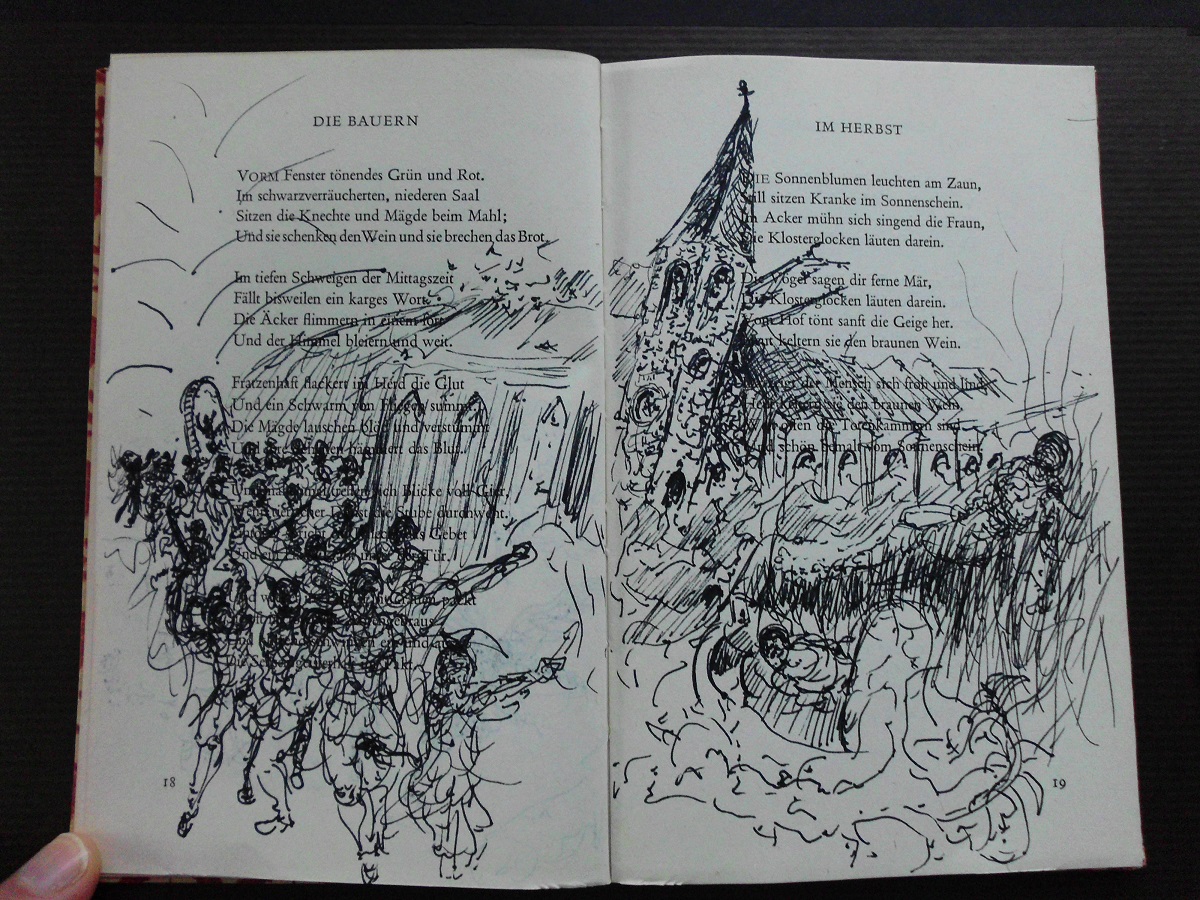 DIE BAUERN
VORM Fenster tönendes Grün und Rot.
Im schwarzverräucherten, niederen Saal
Sitzen die Knechte und Mägde beim Mahl;
Und sie schenken den Wein und sie brechen das Brot.
Im tiefen Schweigen der Mittagszeit
Fällt bisweilen ein karges Wort.
Die Äcker flimmern in einem fort
Und der Himmel bleiern und weit.
Fratzenhaft flackert im Herd die Glut
Und ein Schwarm von Fliegen summt.
Die Mägde lauschen blöd und verstummt
Und ihre Schläfen hämmert das Blut.
Und manchmal treffen sich Blicke voll Gier,
Wenn tierischer Dunst die Stube durchweht.
das Gebet
Tür.
packt
18
IM HERBST
DIE Sonnenblumen leuchten am Zaun,
Still sitzen Kranke im Sonnenschein.
Im Acker mühn sich singend die Fraun,
Die Klosterglocken läuten darein.
Die Vögel sagen dir ferne Mär,
Die Klosterglocken läuten darein.
Vom Hof tönt sanft die Geige her.
Heut keltern sie den braunen Wein.
Da zeigt der Mensch sich froh und lind.
Heut keltern sie den braunen Wein.
Weit offen die Totenkammern sind
Und schön bemalt vom Sonnenschein.
19